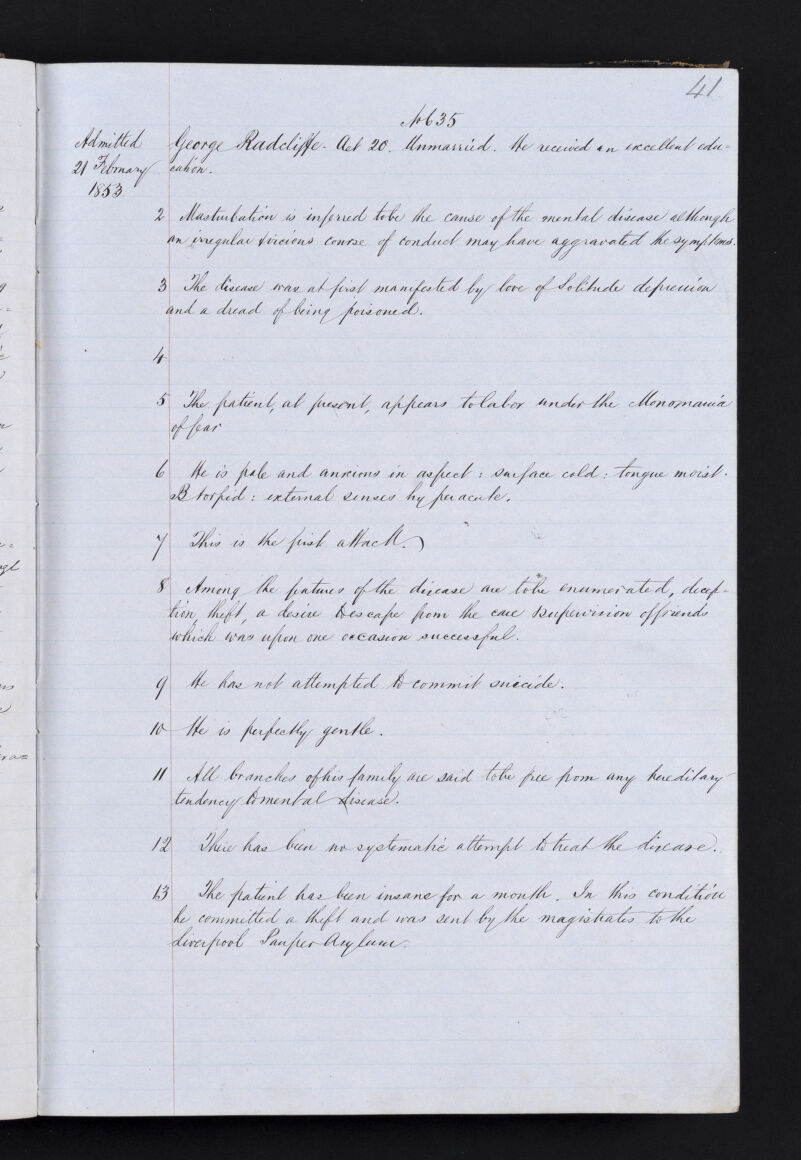 41
No 635
Admitted
21 February
1853
George Radcliffe. Aet 20. Unmarried. He received an excellent edu-
cation.
2 Masturbation is inferred to be the cause of the mental disease although
an irregular & vicious course of conduct may have aggravated the symptoms.
3 The disease was at first manifested by love of Solitude depression
and a dread of being poisoned.
4
5 The patient, at present, appears to labor under the Monomania
of fear
6 He is pale and anxious in aspect: surface cold: tongue moist.
B torpid: external senses hyperacute.
7 This is the first attack.
8 Among the features of the disease are to be enumerated, decep-
tion, theft, a desire to escape from the care & supervision of friends
which was upon one occasion successful.
9 He has not attempted to commit suicide.
10 He is perfectly gentle.
11 All branches of his family are said to be free from any hereditary
tendency to mental disease.
12 There has been no systematic attempt to treat the disease.
13 The patient has been insane for a month. In this condition
he committed a theft and was sent by the magistrates to the
Liverpool Pauper Asylum.